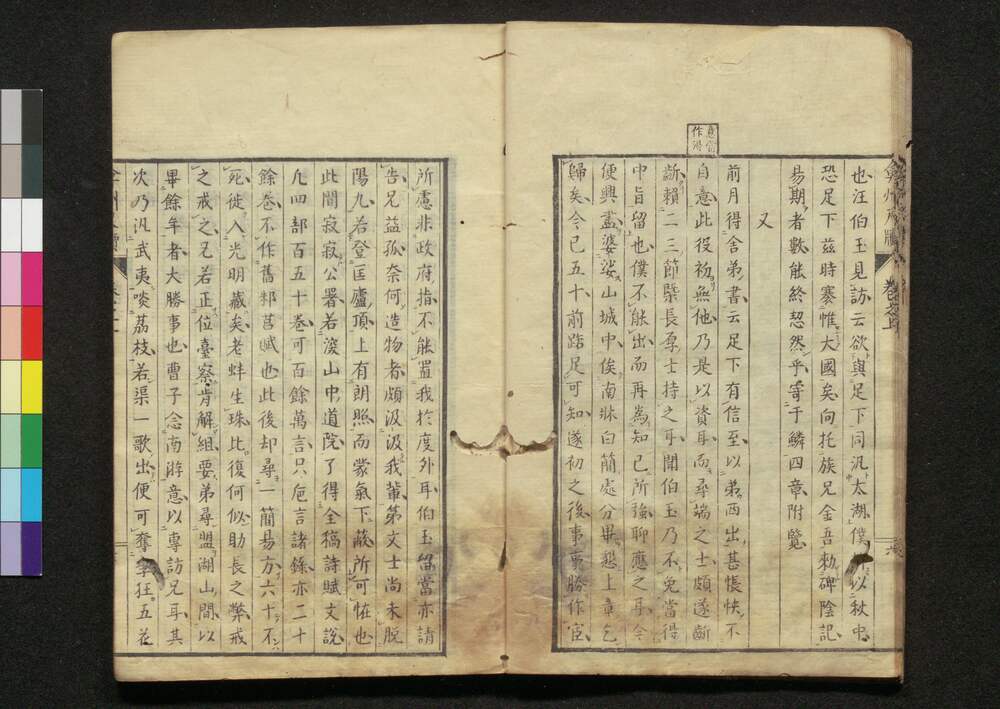 弇州尺牘 卷之上
也汪伯玉見訪云欲與足下同汎太湖僕以秋中
恐足下茲時褰惟大國矣向托族兄金吾勒碑陰記
易期者數能終恝然乎寄于鱗四章附覽
又
意當作得
前月得舍弟書云足下有信至以弟西出甚悵怏不
自意此役初無他乃是以資耳而尋端之士頗遂斷
斷賴二三節槩長厚士持之耳聞伯玉乃不免當得
中旨留也僕不能出而再為知己所強聊應之耳今
便興盡婆娑山城中俟南牀白簡處分畢懇上章乞
歸矣今已五十前路足可知遂初之後事事勝作宦
所慮非政府指不能置我於度外耳伯玉留當亦請
告兄益孤奈何造物者頗汲汲我輩第文士尚未脫
陽九若登匡廬頂上有朗照而蒙氣下蔽所可怪也
此間寂寂公署若深山中道院了得全稿詩賦文說
凡四部百五十卷可百餘萬言只巵言諸錄亦二十
餘卷不作舊邾莒賦也此後却尋一簡易方六十不
死徒入光明藏矣老蚌生珠比復何似助長之弊戒
之戒之兄若正位臺察肯解組要弟尋盟湖山間以
畢餘年者大勝事也曹子念南游意以專訪兄耳其
次乃汎武夷啖荔枝若渠一歌出便可奪李狂五花